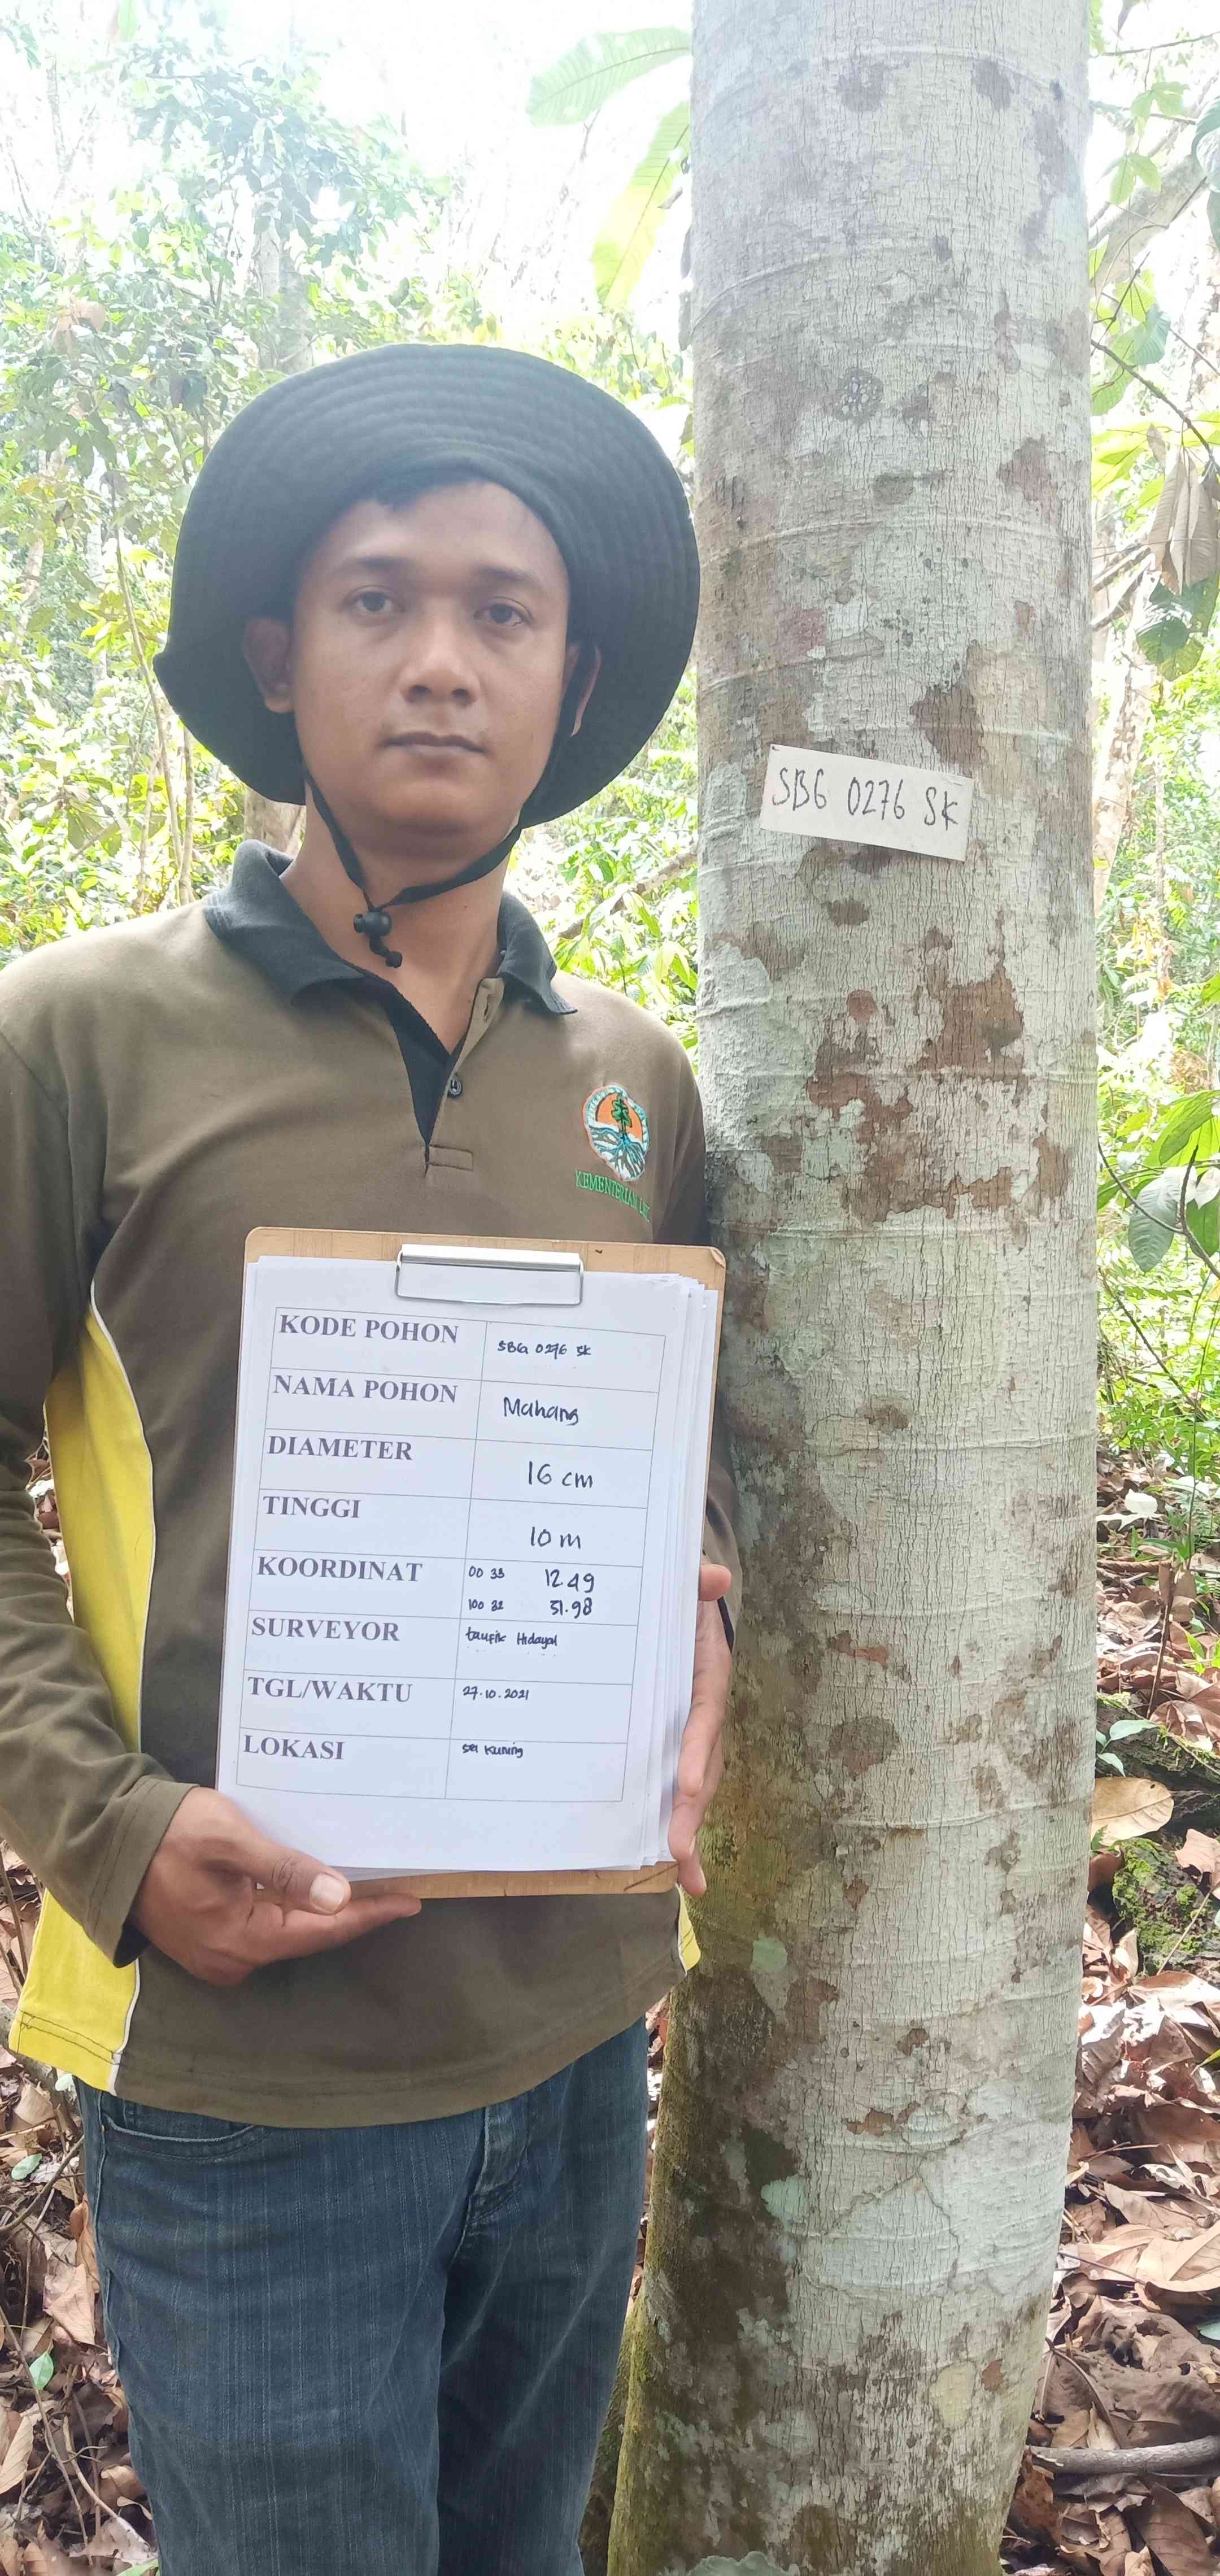 SBG 0276 SK
KEMENTERIAN LH
KODE POHON SBG 0276 SK
NAMA POHON Mahang
DIAMETER 16 cm
TINGGI 10 m
KOORDINAT 00 33 12.49
100 32 51.98
SURVEYOR taufik Hidayat
TGL/WAKTU 27.10.2021
LOKASI sei Kuning